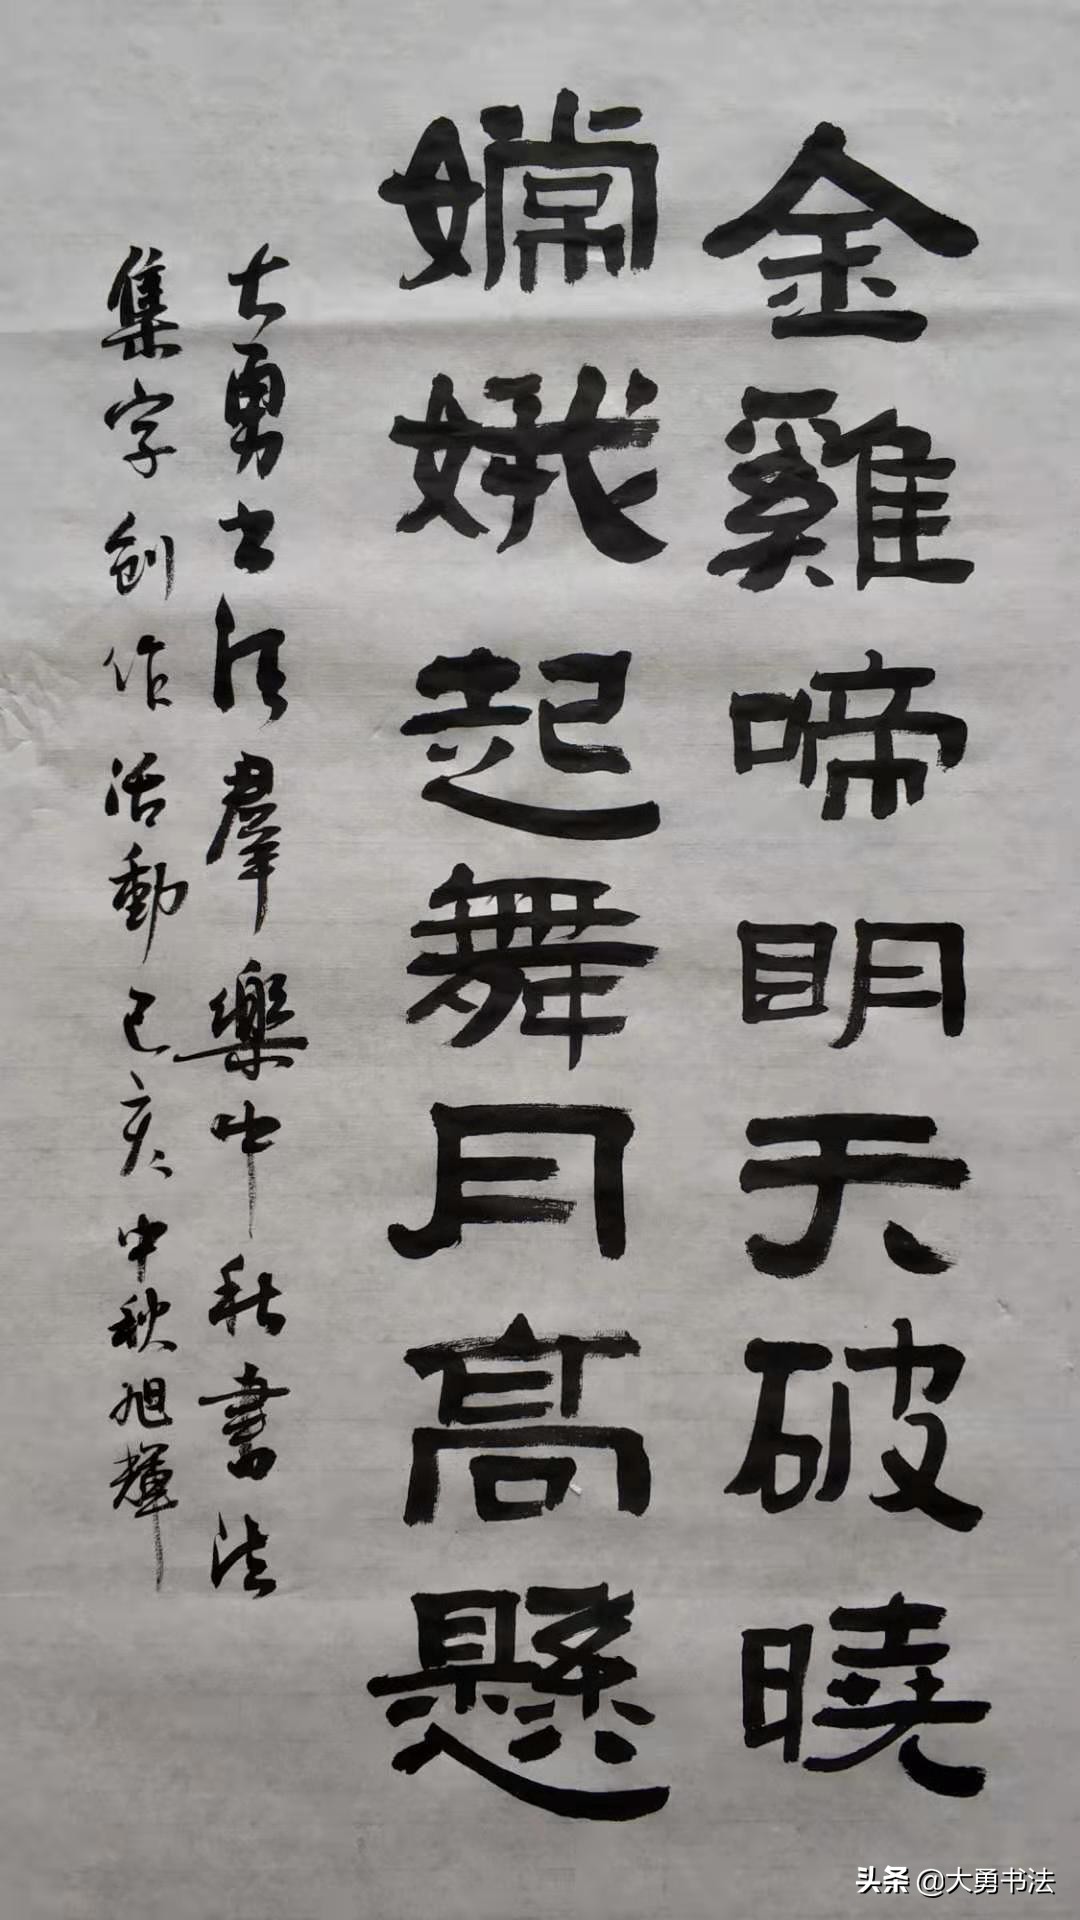 金雞啼明天破曉
嫦娥起舞月高懸
大勇书法群樂中秋書法
集字創作活動己亥中秋旭輝
头条 @大勇书法